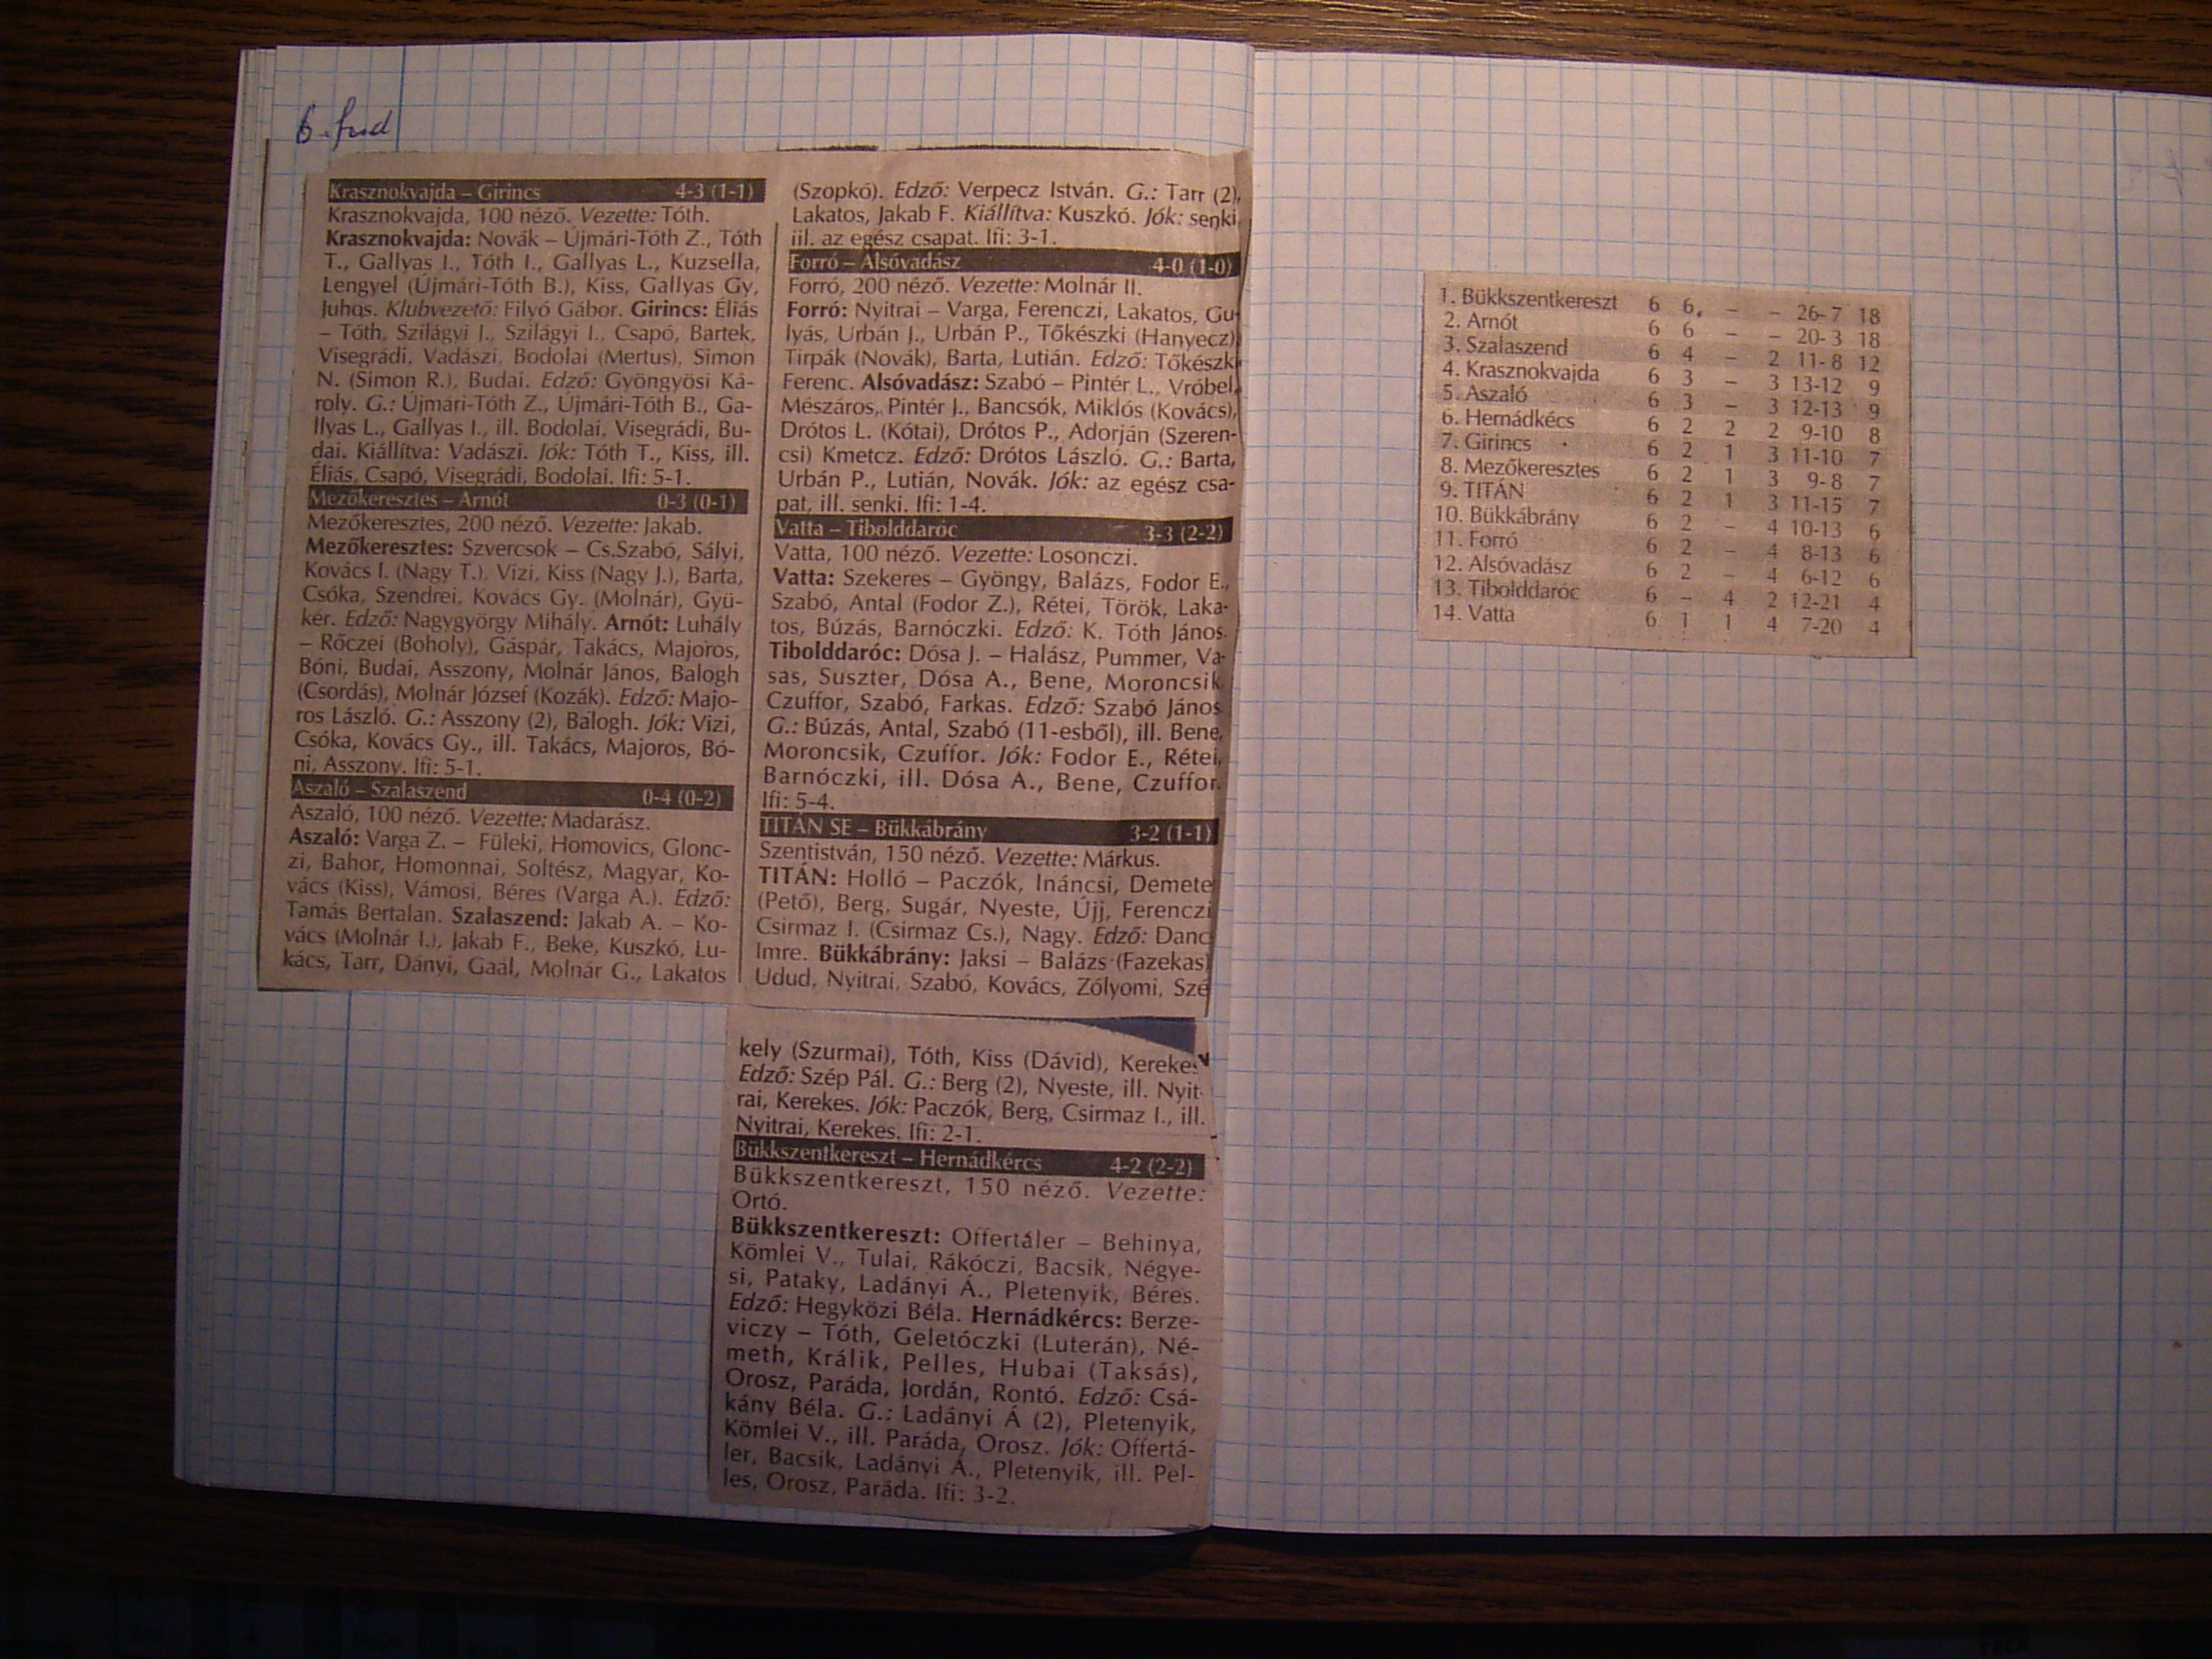 6. ford
Krasznokvajda – Girincs 4-3 (1-1)
Krasznokvajda, 100 néző. Vezette: Tóth.
Krasznokvajda: Novák – Újmári-Tóth Z., Tóth
T., Gallyas I., Tóth I., Gallyas L., Kuzsella,
Lengyel (Újmári-Tóth B.), Kiss, Gallyas Gy,
Juhos. Klubvezető: Filyó Gábor. Girincs: Éliás
– Tóth, Szilágyi I., Szilágyi I., Csapó, Bartek,
Visegrádi, Vadászi, Bodolai (Mertus), Simon
N. (Simon R.), Budai. Edző: Gyöngyösi Ká-
roly. G.: Újmári-Tóth Z., Újmári-Tóth B., Ga-
llyas L., Gallyas I., ill. Bodolai, Visegrádi, Bu-
dai. Kiállítva: Vadászi. Jók: Tóth T., Kiss, ill.
Éliás, Csapó, Visegrádi, Bodolai. Ifi: 5-1.
Mezőkeresztes – Arnót 0-3 (0-1)
Mezőkeresztes, 200 néző. Vezette: Jakab.
Mezőkeresztes: Szvercsok – Cs.Szabó, Sályi,
Kovács I. (Nagy T.), Vizi, Kiss (Nagy J.), Barta,
Csóka, Szendrei, Kovács Gy. (Molnár), Gyü-
kér. Edző: Nagygyörgy Mihály. Arnót: Luhály
– Rőczei (Boholy), Gáspár, Takács, Majoros,
Bóni, Budai, Asszony, Molnár János, Balogh
(Csordás), Molnár József (Kozák). Edző: Majo-
ros László. G.: Asszony (2), Balogh. Jók: Vizi,
Csóka, Kovács Gy., ill. Takács, Majoros, Bó-
ni, Asszony. Ifi: 5-1.
Aszaló – Szalaszend 0-4 (0-2)
Aszaló, 100 néző. Vezette: Madarász.
Aszaló: Varga Z. – Füleki, Homovics, Glonc-
zi, Bahor, Homonnai, Soltész, Magyar, Ko-
vács (Kiss), Vámosi, Béres (Varga A.). Edző:
Tamás Bertalan. Szalaszend: Jakab A. – Ko-
vács (Molnár I.), Jakab F., Beke, Kuszkó, Lu-
kács, Tarr, Dányi, Gaál, Molnár G., Lakatos
(Szopkó). Edző: Verpecz István. G.: Tarr (2),
Lakatos, Jakab F. Kiállítva: Kuszkó. Jók: senki,
ill. az egész csapat. Ifi: 3-1.
Forró – Alsóvadász 4-0 (1-0)
Forró, 200 néző. Vezette: Molnár II.
Forró: Nyitrai – Varga, Ferenczi, Lakatos, Gu-
lyás, Urbán J., Urbán P., Tőkészki (Hanyecz)
Tirpák (Novák), Barta, Lutián. Edző: Tőkészki
Ferenc. Alsóvadász: Szabó – Pintér L., Vróbel,
Mészáros, Pintér J., Bancsók, Miklós (Kovács),
Drótos L. (Kótai), Drótos P., Adorján (Szeren-
csi) Kmetcz. Edző: Drótos László. G.: Barta,
Urbán P., Lutián, Novák. Jók: az egész csa-
pat, ill. senki. Ifi: 1-4.
Vatta – Tibolddaróc 3-3 (2-2)
Vatta, 100 néző. Vezette: Losonczi.
Vatta: Szekeres – Gyöngy, Balázs, Fodor E.,
Szabó, Antal (Fodor Z.), Rétei, Török, Laka-
tos, Búzás, Barnóczki. Edző: K. Tóth János.
Tibolddaróc: Dósa J. – Halász, Pummer, Va-
sas, Suszter, Dósa A., Bene, Moroncsik,
Czuffor, Szabó, Farkas. Edző: Szabó János.
G.: Búzás, Antal, Szabó (11-esből), ill. Bene,
Moroncsik, Czuffor. Jók: Fodor E., Rétei,
Barnóczki, ill. Dósa A., Bene, Czuffor.
Ifi: 5-4.
TITÁN SE – Bükkábrány 3-2 (1-1)
Szentistván, 150 néző. Vezette: Márkus.
TITÁN: Holló – Paczók, Ináncsi, Demete
(Pető), Berg, Sugár, Nyeste, Újj, Ferenczi
Csirmaz I. (Csirmaz Cs.), Nagy. Edző: Danc
Imre. Bükkábrány: Jaksi – Balázs (Fazekas)
Udud, Nyitrai, Szabó, Kovács, Zólyomi, Szé
kely (Szurmai), Tóth, Kiss (Dávid), Kerekes
Edző: Szép Pál. G.: Berg (2), Nyeste, ill. Nyit-
rai, Kerekes. Jók: Paczók, Berg, Csirmaz I., ill.
Nyitrai, Kerekes. Ifi: 2-1.
Bükkszentkereszt – Hernádkércs 4-2 (2-2)
Bükkszentkereszt, 150 néző. Vezette:
Ortó.
Bükkszentkereszt: Offertáler – Behinya,
Kömlei V., Tulai, Rákóczi, Bacsik, Négye-
si, Pataky, Ladányi Á., Pletenyik, Béres.
Edző: Hegyközi Béla. Hernádkércs: Berze-
viczy – Tóth, Geletóczki (Luterán), Né-
meth, Králik, Pelles, Hubai (Taksás),
Orosz, Paráda, Jordán, Rontó. Edző: Csá-
kány Béla. G.: Ladányi Á (2), Pletenyik,
Kömlei V., ill. Paráda, Orosz. Jók: Offertá-
ler, Bacsik, Ladányi Á., Pletenyik, ill. Pel-
les, Orosz, Paráda. Ifi: 3-2.
1. Bükkszentkereszt 6 6 – – 26- 7 18
2. Arnót 6 6 – – 20- 3 18
3. Szalaszend 6 4 – 2 11- 8 12
4. Krasznokvajda 6 3 – 3 13-12 9
5. Aszaló 6 3 – 3 12-13 9
6. Hernádkécs 6 2 2 2 9-10 8
7. Girincs 6 2 1 3 11-10 7
8. Mezőkeresztes 6 2 1 3 9- 8 7
9. TITÁN 6 2 1 3 11-15 7
10. Bükkábrány 6 2 – 4 10-13 6
11. Forró 6 2 – 4 8-13 6
12. Alsóvadász 6 2 – 4 6-12 6
13. Tibolddaróc 6 – 4 2 12-21 4
14. Vatta 6 1 1 4 7-20 4